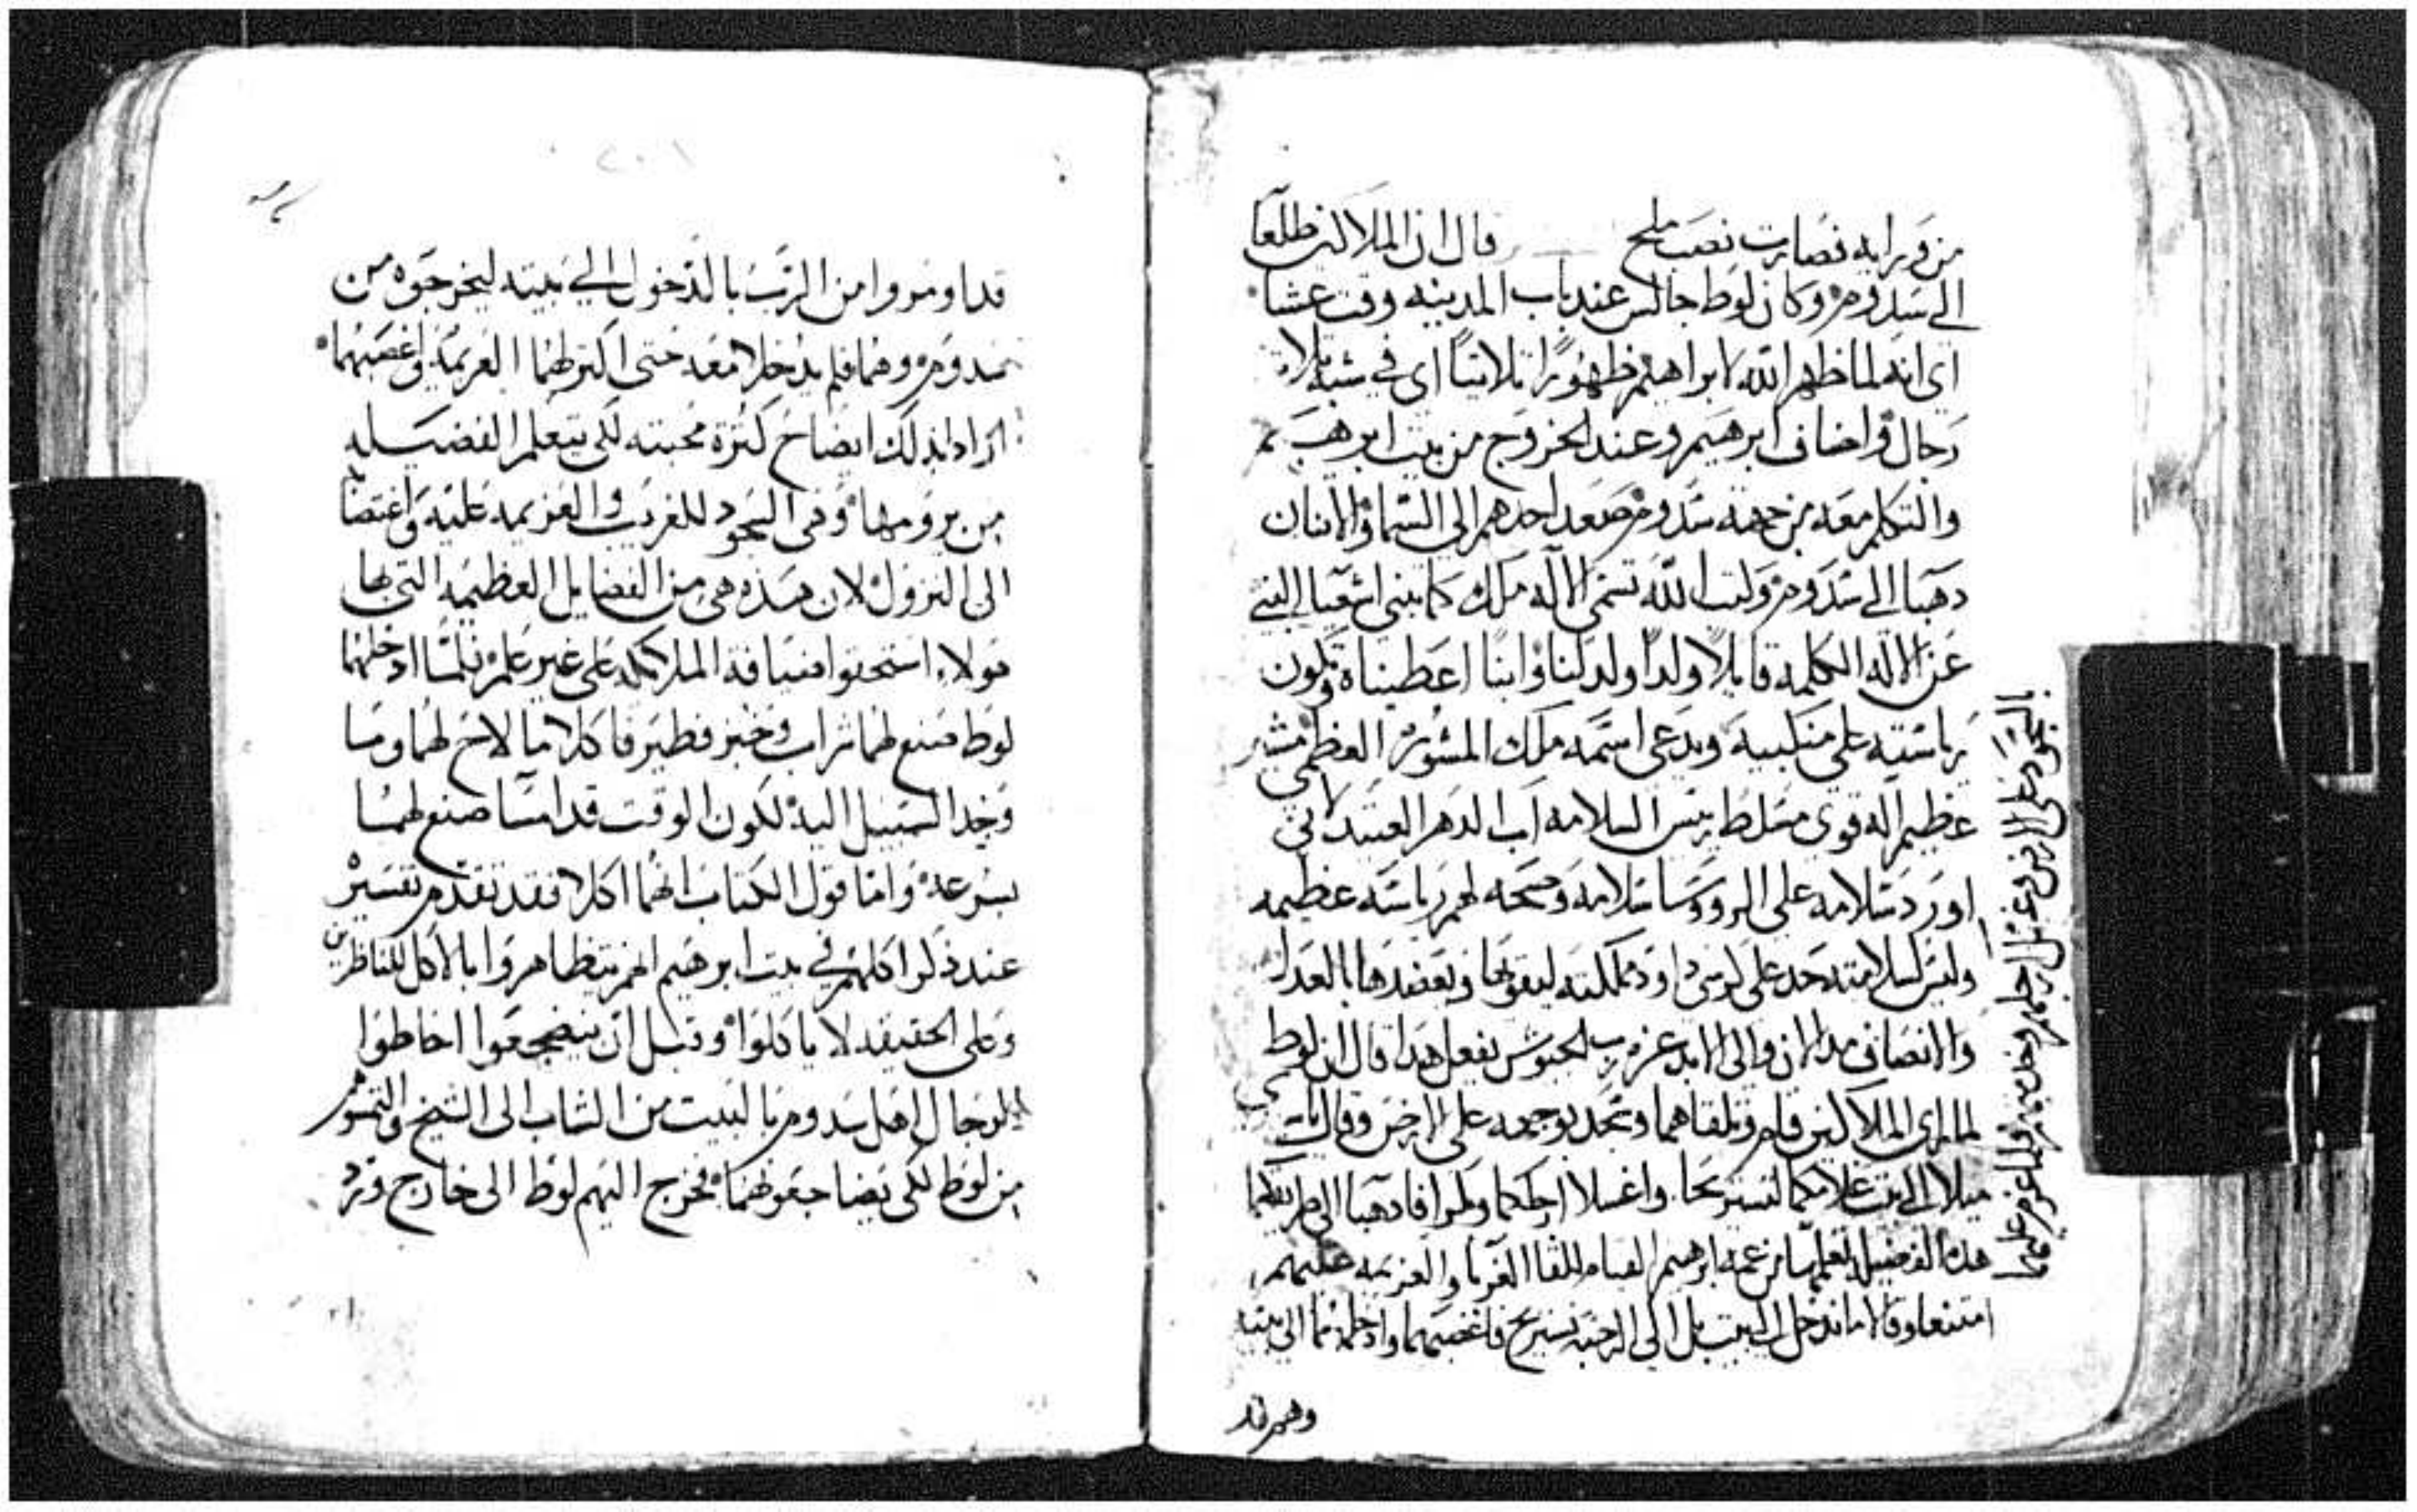 من ورايه فصارت نصب ملح قال ان الملاكين طلعا
الي سدوم وكان لوط جالس عند باب المدينه وقت عشا
اي انه لما ظهر الله لابراهيم ظهورًا ثلاثيًا اي في شبه ثلاثه
رجال واضاف ابرهيم وعند الخروج من بيت ابرهيم
والتكلم معه من جهة سدوم صعد احدهم الى السما والاثنان
دهبا الي سدوم وليس الله تسمى الاله ملاك كما ينبي اشعيا النبي
عن الاله الكلمه قايلا ولدًا ولد لنا وابنًا اعطيناه وتكون
رياسته على منكبيه ويدعى اسمه ملاك المشوره العظمى مشير
عظيم اله قوى مسلط ريس السلامه اب الدهر العتيد لاني
اورد سلامه على الروسا سلامه وصحه لهم رياسته عظيمه
وليس لسلامته حد على كرسى داود ومملكته ليقويها ويعضدها بالعدل
والانصاف مند الان والى الابد غيرة رب الجيوش تفعل هدا قال ان لوط
لما راى الملاكين قام وتلقاهما وسجد بوجهه على الارض وقال يا
ميلا الى بيت غلامكما لتستريحا واغسلا ارجلكما وبكرا فادهبا الى طريقكما
هذه الفضيله تعلمها من عمه ابرهيم القيام للقا الغربا والعزيمه عليهم
امتنعا وقالا ما ندخل البيت بل الى الرحبه نستريح فاغصبهما وادخلهما الى بيته
وهم قد
السجود على الارض وغسل ارجلهم ولما عزم عليهما
قد اومروا من الرب بالدخول الي بيته ليخرجوه من
سدوم وهما فلم يدخلا معه حتى اكتر لهما العزيمه واغصبهما
ارادا بدلك ايضاح كثرة محبته لكى يتعلم الفضيله
من يرومها وهى السجود للغريب والعزيمه عليه واغتصابه
الى النزول لان هذه هي من الفضايل العظيمه التى بها
هولاء استحقوا ضيافة الملايكه على غير علم فلما ادخلهما
لوط صنع لهما شراب وخبز فطير فاكلا ما لاح لهما وما
وجد السبيل اليه لكون الوقت قد امسا صنع لهما
بسرعه واما قول الكتاب انهما اكلا فقد تقدم تفسيره
عند ذكر اكلهم في بيت ابرهيم انهم يتظاهروا بالاكل للناظرين
وعلى الحقيقه لا ياكلوا وقبل ان ينضجعوا احاطوا
الرجال اهل سدوم بالبيت من الشاب الى الشيخ والتمسوهم
من لوط لكى يضاجعوهما فخرج اليهم لوط الى خارج ورد